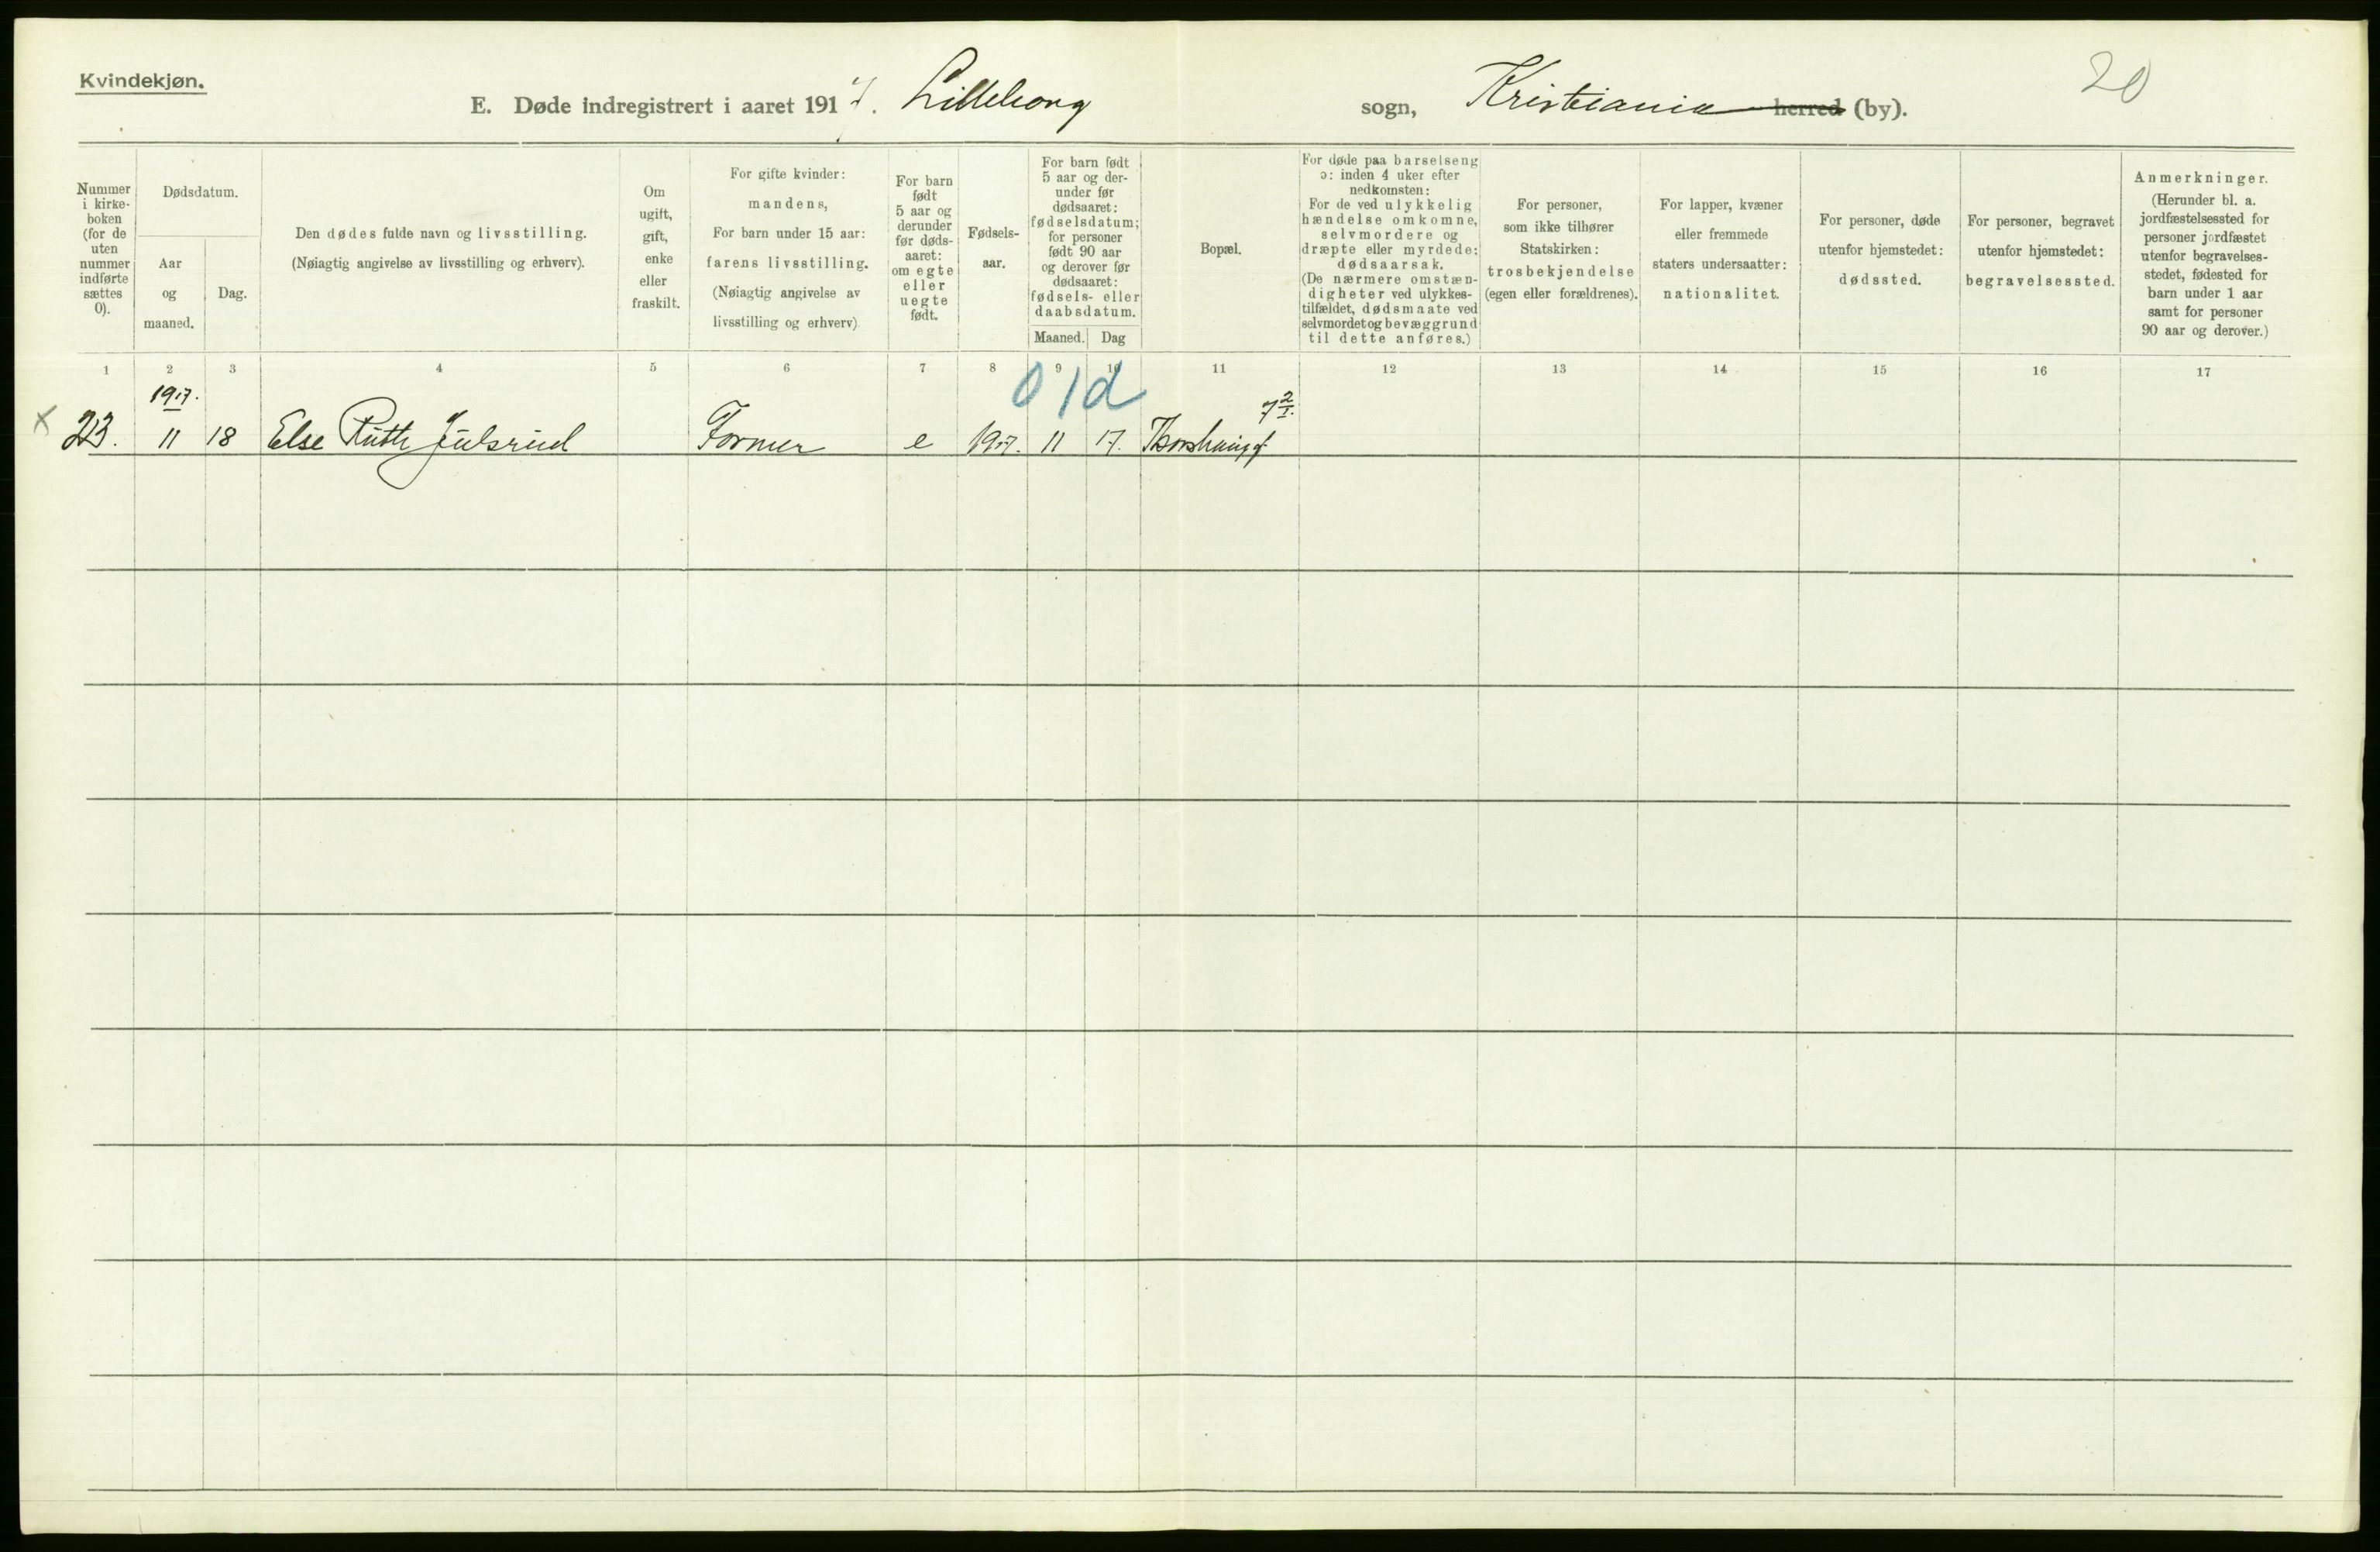 Kvindekjøn.
E. Døde indregistrert i aaret 1917. Lilleborg sogn, Kristiania herred (by).
20
Nummer
i kirke-
boken
(for de
uten
nummer
indførte
sættes
0).
Dødsdatum.
Aar
og
maaned.
Dag.
Den dødes fulde navn og livsstilling.
(Nøiagtig angivelse av livsstilling og erhverv).
Om
ugift,
gift,
enke
eller
fraskilt.
For gifte kvinder:
mandens,
For barn under 15 aar:
farens livsstilling.
(Nøiagtig angivelse av
livsstilling og erhverv)
For barn
født
5 aar og
derunder
før døds-
aaret:
om egte
eller
uegte
født.
Fødsels-
aar.
For barn født
5 aar og der-
under før
dødsaaret:
fødselsdatum;
for personer
født 90 aar
og derover før
dødsaaret:
fødsels- eller
daabsdatum.
Maaned. Dag
Bopæl.
For døde paa barselseng
ɔ: inden 4 uker efter
nedkomsten:
For de ved ulykkelig
hændelse omkomne,
selvmordere og
dræpte eller myrdede:
dødsaarsak.
(De nærmere omstæn-
digheter ved ulykkes-
tilfældet, dødsmaate ved
selvmordet og bevæggrund
til dette anføres.)
For personer,
som ikke tilhører
Statskirken:
trosbekjendelse
(egen eller forældrenes).
For lapper, kvæner
eller fremmede
staters undersaatter:
nationalitet.
For personer, døde
utenfor hjemstedet:
dødssted.
For personer, begravet
utenfor hjemstedet:
begravelsessted.
Anmerkninger.
(Herunder bl. a.
jordfæstelsessted for
personer jordfæstet
utenfor begravelses-
stedet, fødested for
barn under 1 aar
samt for personer
90 aar og derover.)
1 2 3 4 5 6 7 8 9 10 11 12 13 14 15 16 17
1917.
0 1d
7 2/I.
x 23. 11 18 Else Ruth Julsrud Former e 1917. 11 17. Thorshaugg